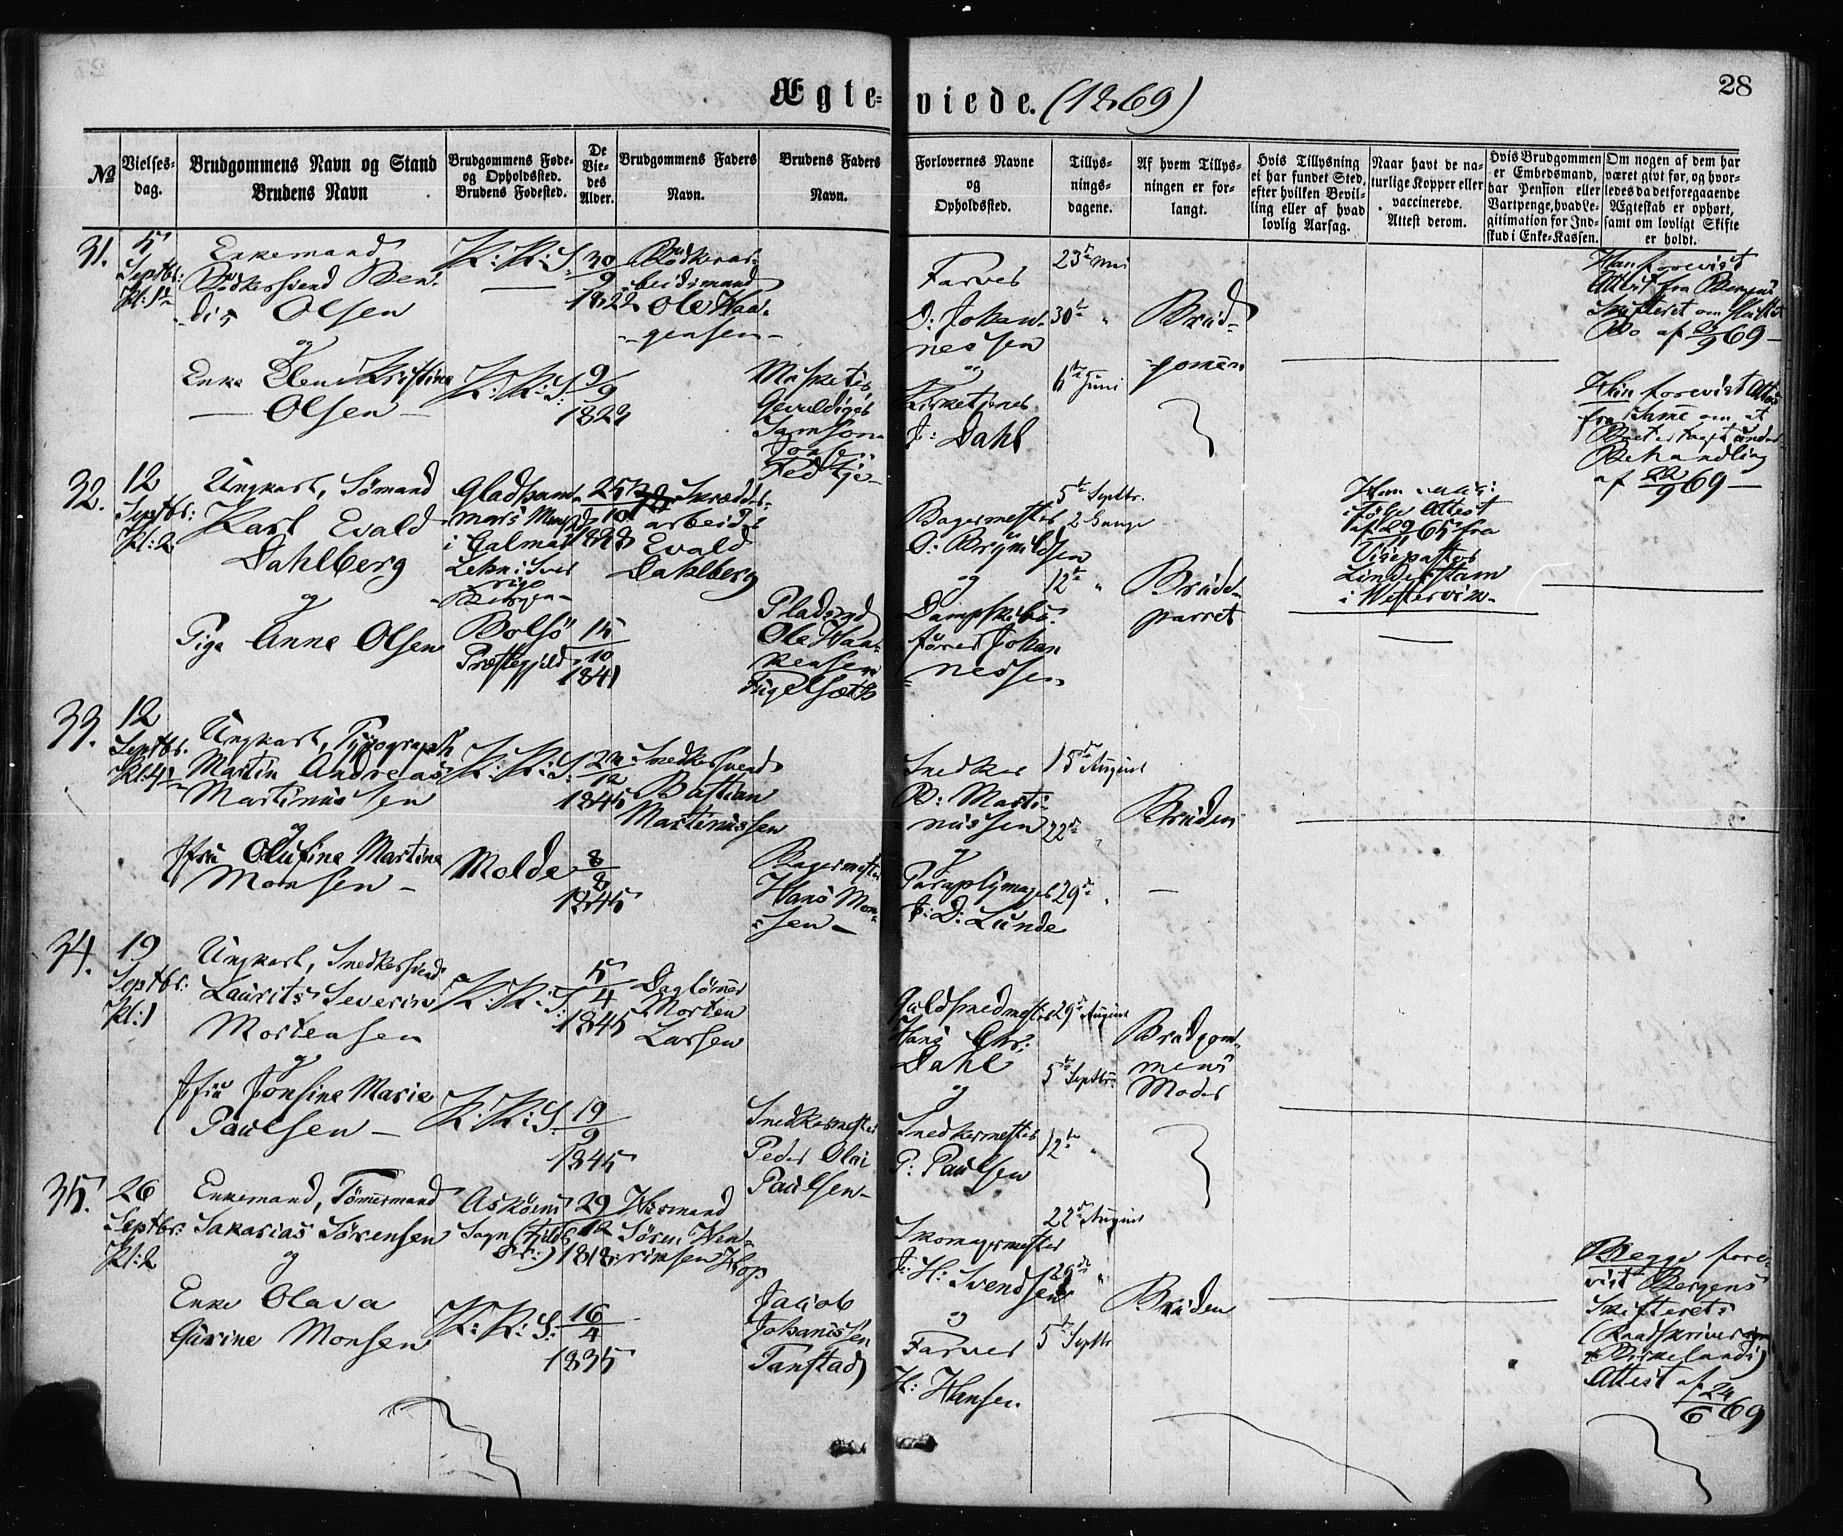 Ægteviede. (1869)
28
№
Vielsesdag.
Brudgommens Navn og Stand
Brudens Navn
Brudgommens Føde-
og Opholdssted.
Brudens Fødested.
De
Vie-
des
Alder.
Brudgommens Faders
Navn.
Brudens Faders
Navn.
Forlovernes Navne
og
Opholdssted.
Tillys-
nings-
dagene.
Af hvem Tillys-
ningen er for-
langt.
Hvis Tillysning
ei har fundet Sted,
efter hvilken Bevil-
ling eller af hvad
lovlig Aarsag.
Naar havt de na-
turlige Kopper eller
vaccinerede.
Attest derom.
Hvis Brudgommen
er Embedsmand,
har Pension eller
Vartpenge, hvad Le-
gitimation for Ind-
skud i Enke-Kassen.
Om nogen af dem har
været givt før, og hvor-
ledes da det foregaaende
Ægteskab er ophørt,
samt om lovligt Skifte
er holdt.
31.
5
Septbr:
Enkemand
Bødkersvend Ben-
dix Olsen
og
Enke Elen Kristine
Olsen
K: K: S:
30
9
1822
Ole Haa-
gensen
K: K: S:
9
9
1829
Samson
Farver
D: Johan-
nessen
og
J: Dahl
23de Mai
30te "
6te Juni
Brud-
gomen
Han forevist
Attest fra Bergens
Skifteret om sluttet
Bo af 69
Hun forevist Attest
fra Samme om, at
Boet er taget under
Behandling
af 69
32.
12
Septbr:
Kl: 2
Ungkarl, Sømand
Karl Evald
Dahlberg
og
Pige Anne Olsen
Gladham-
mars
i Calmar
Lehn i Sver-
rige
Bergen
Bolsø
Præstegjeld
15
10
1841
Skrædder-
arbeider
Evald
Dahlberg
Pladsmd
Ole Haa-
kensen
Bagermester
O: Brynildsen
og
Dampskibs-
fører Johan-
nessen
5te Septbr.
2 Gange
12te "
Brude-
parret
i følge Attest
af 65 fra
Vicepastor
Linderstam
i Westervik
33.
12
Septbr.
Ungkarl, Typograph
Martin Andreas
Martinussen
og
Jfru Olufine Martine
Monsen
K: K: S:
12
1845
Molde
8
8
1845
Snedkersvend
Bastian
Martinussen
Bagermester
Hans Mon-
sen
Snedker
B: Marti-
nussen
og
Paraplymager
J: D: Lunde
15de August
22de "
29de "
Bruden
34.
19
Septbr:
Kl: 1
Ungkarl, Snedkersvend
Laurits Severin
Mortensen
og
Jfru Jonsine Marie
Paulsen
K: K: S:
5
4
1845
K: K: S:
19
9
1845
Daglønner
Morten
Larsen
Snedkermester
Peder Olai
Paulsen
Guldsmedmester
Hans Chr:
Dahl
og
Snedkermester
P: Paulsen
29de August
5te Septbr:
12te "
Brudgom-
mens
Moder
35.
26
Septbr:
Kl: 2
Enkemand, Tømmermand
Sakarias Sørensen
og
Enke Olava
Gurine Monsen
Askøens
Sogn
29
12
1818
K: K: S:
16
4
1835
Huusmand
Søren Hen-
riksen Hop
Jacob
Johanssen
Tanstad
Skomagermester
J: H: Svendsen
og
Farver
H: Hansen
22de August
29de "
5te Septbr
Bruden
Begge fore-
vist Bergens
Skifterets
(Raadskriver
Birkelands)
Attest af 24/6 69